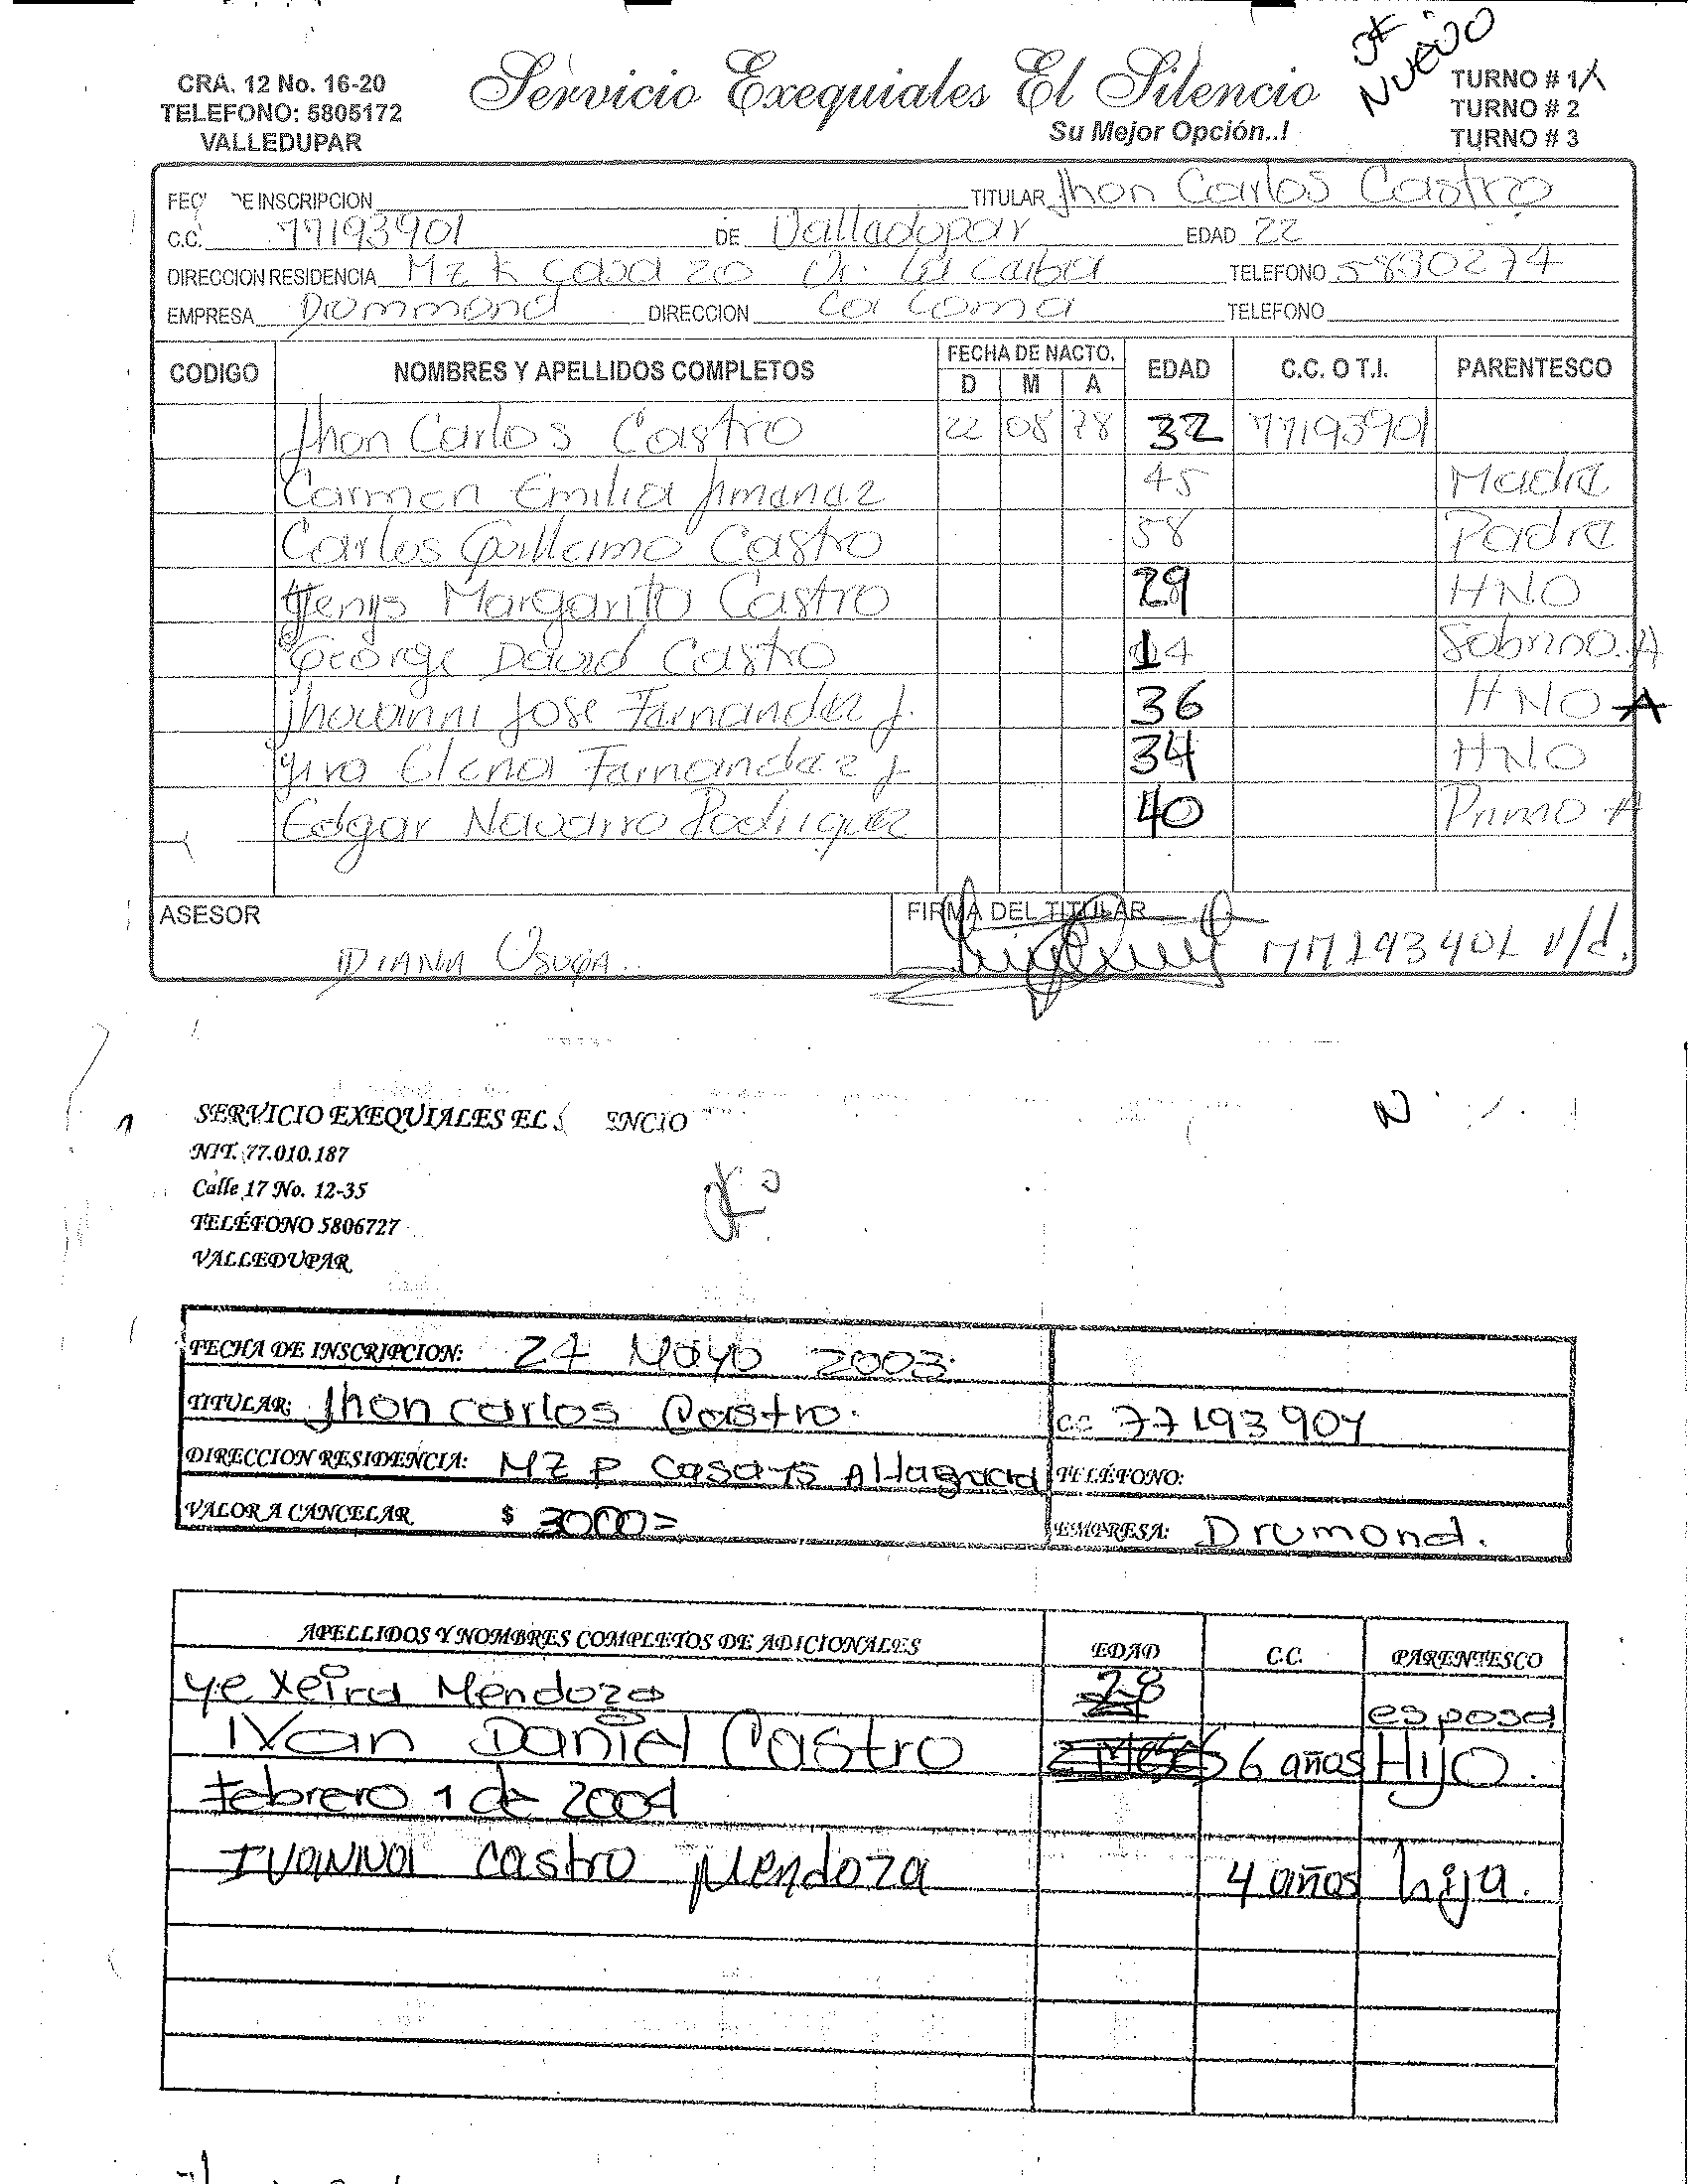 OK NUEVO
CRA. 12 No. 16-20
TELEFONO: 5805172
VALLEDUPAR
Servicio Exequiales El Silencio
Su Mejor Opción..!
TURNO # 1 X
TURNO # 2
TURNO # 3
DE INSCRIPCION TITULAR Jhon Carlos Castro
C.C. 77193901 DE Valladopar EDAD 22
DIRECCION RESIDENCIA Mz K Casa 20 La Caiba TELEFONO 5830274
EMPRESA Drummond DIRECCION La Loma TELEFONO
CODIGO NOMBRES Y APELLIDOS COMPLETOS FECHA DE NACTO. D M A EDAD C.C. O T.I. PARENTESCO
Jhon Carlos Castro 22 08 78 32 77193901
Carmen Emilia Jimanaz 45 Madre
Carlos Guillermo Castro 58 Padre
Yenys Margarita Castro 29 HNO
George David Castro 14 Sobrino. A
Jhovanni Jose Farnandez J. 36 HNO A
Elena Farnandaz J. 34 HNO
Edgar Navarro Rodriguez 40 Primo A
ASESOR DIANA USUGA FIRMA DEL TITULAR 77193901 v/d.
SERVICIO EXEQUIALES EL ENCIO
N
NIT. 77.010.187
Calle 17 No. 12-35
OK
TELÉFONO 5806727
VALLEDUPAR
FECHA DE INSCRIPCION: 24 Mayo 2003
TITULAR: Jhon carlos Castro. C.C 77193901
DIRECCION RESIDENCIA: MZ P Casa 15 Altagracia TELÉFONO:
VALOR A CANCELAR $ 3000= EMPRESA: Drumond.
APELLIDOS Y NOMBRES COMPLETOS DE ADICIONALES EDAD C.C. PARENTESCO
Yexeira Mendoza 28 esposa
IVan Daniel Castro 6 años HIJO.
Febrero 1 de 2004
IVANNA Castro Mendoza 4 años hija.